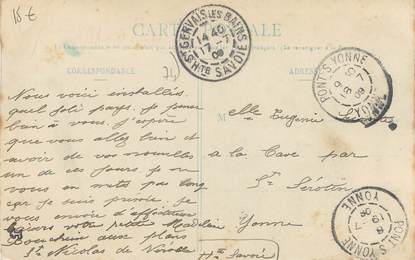 15 €
CARTE POSTALE
CORRESPONDANCE
ADRESSE
74
ST GERVAIS LES BAINS
14 40
17 -7
09
HTE SAVOIE
PONT S YONNE
18 -7
09
YONNE
PONT S YONNE
18 -7
09
YONNE
Nous voici installés.
Quel joli pays. Je pense
bien à vous. J'espère
que vous allez bien et
avoir de vos nouvelles
un de ces jours je ne
vous en mets pas long
car je suis pressée je
vous envoie d'affectueux
baisers votre petite Madeleine
aux plans
St Nicolas de Véroce
Hte Savoie
Melle Eugénie
à la Cave par
St Sérotin
Yonne